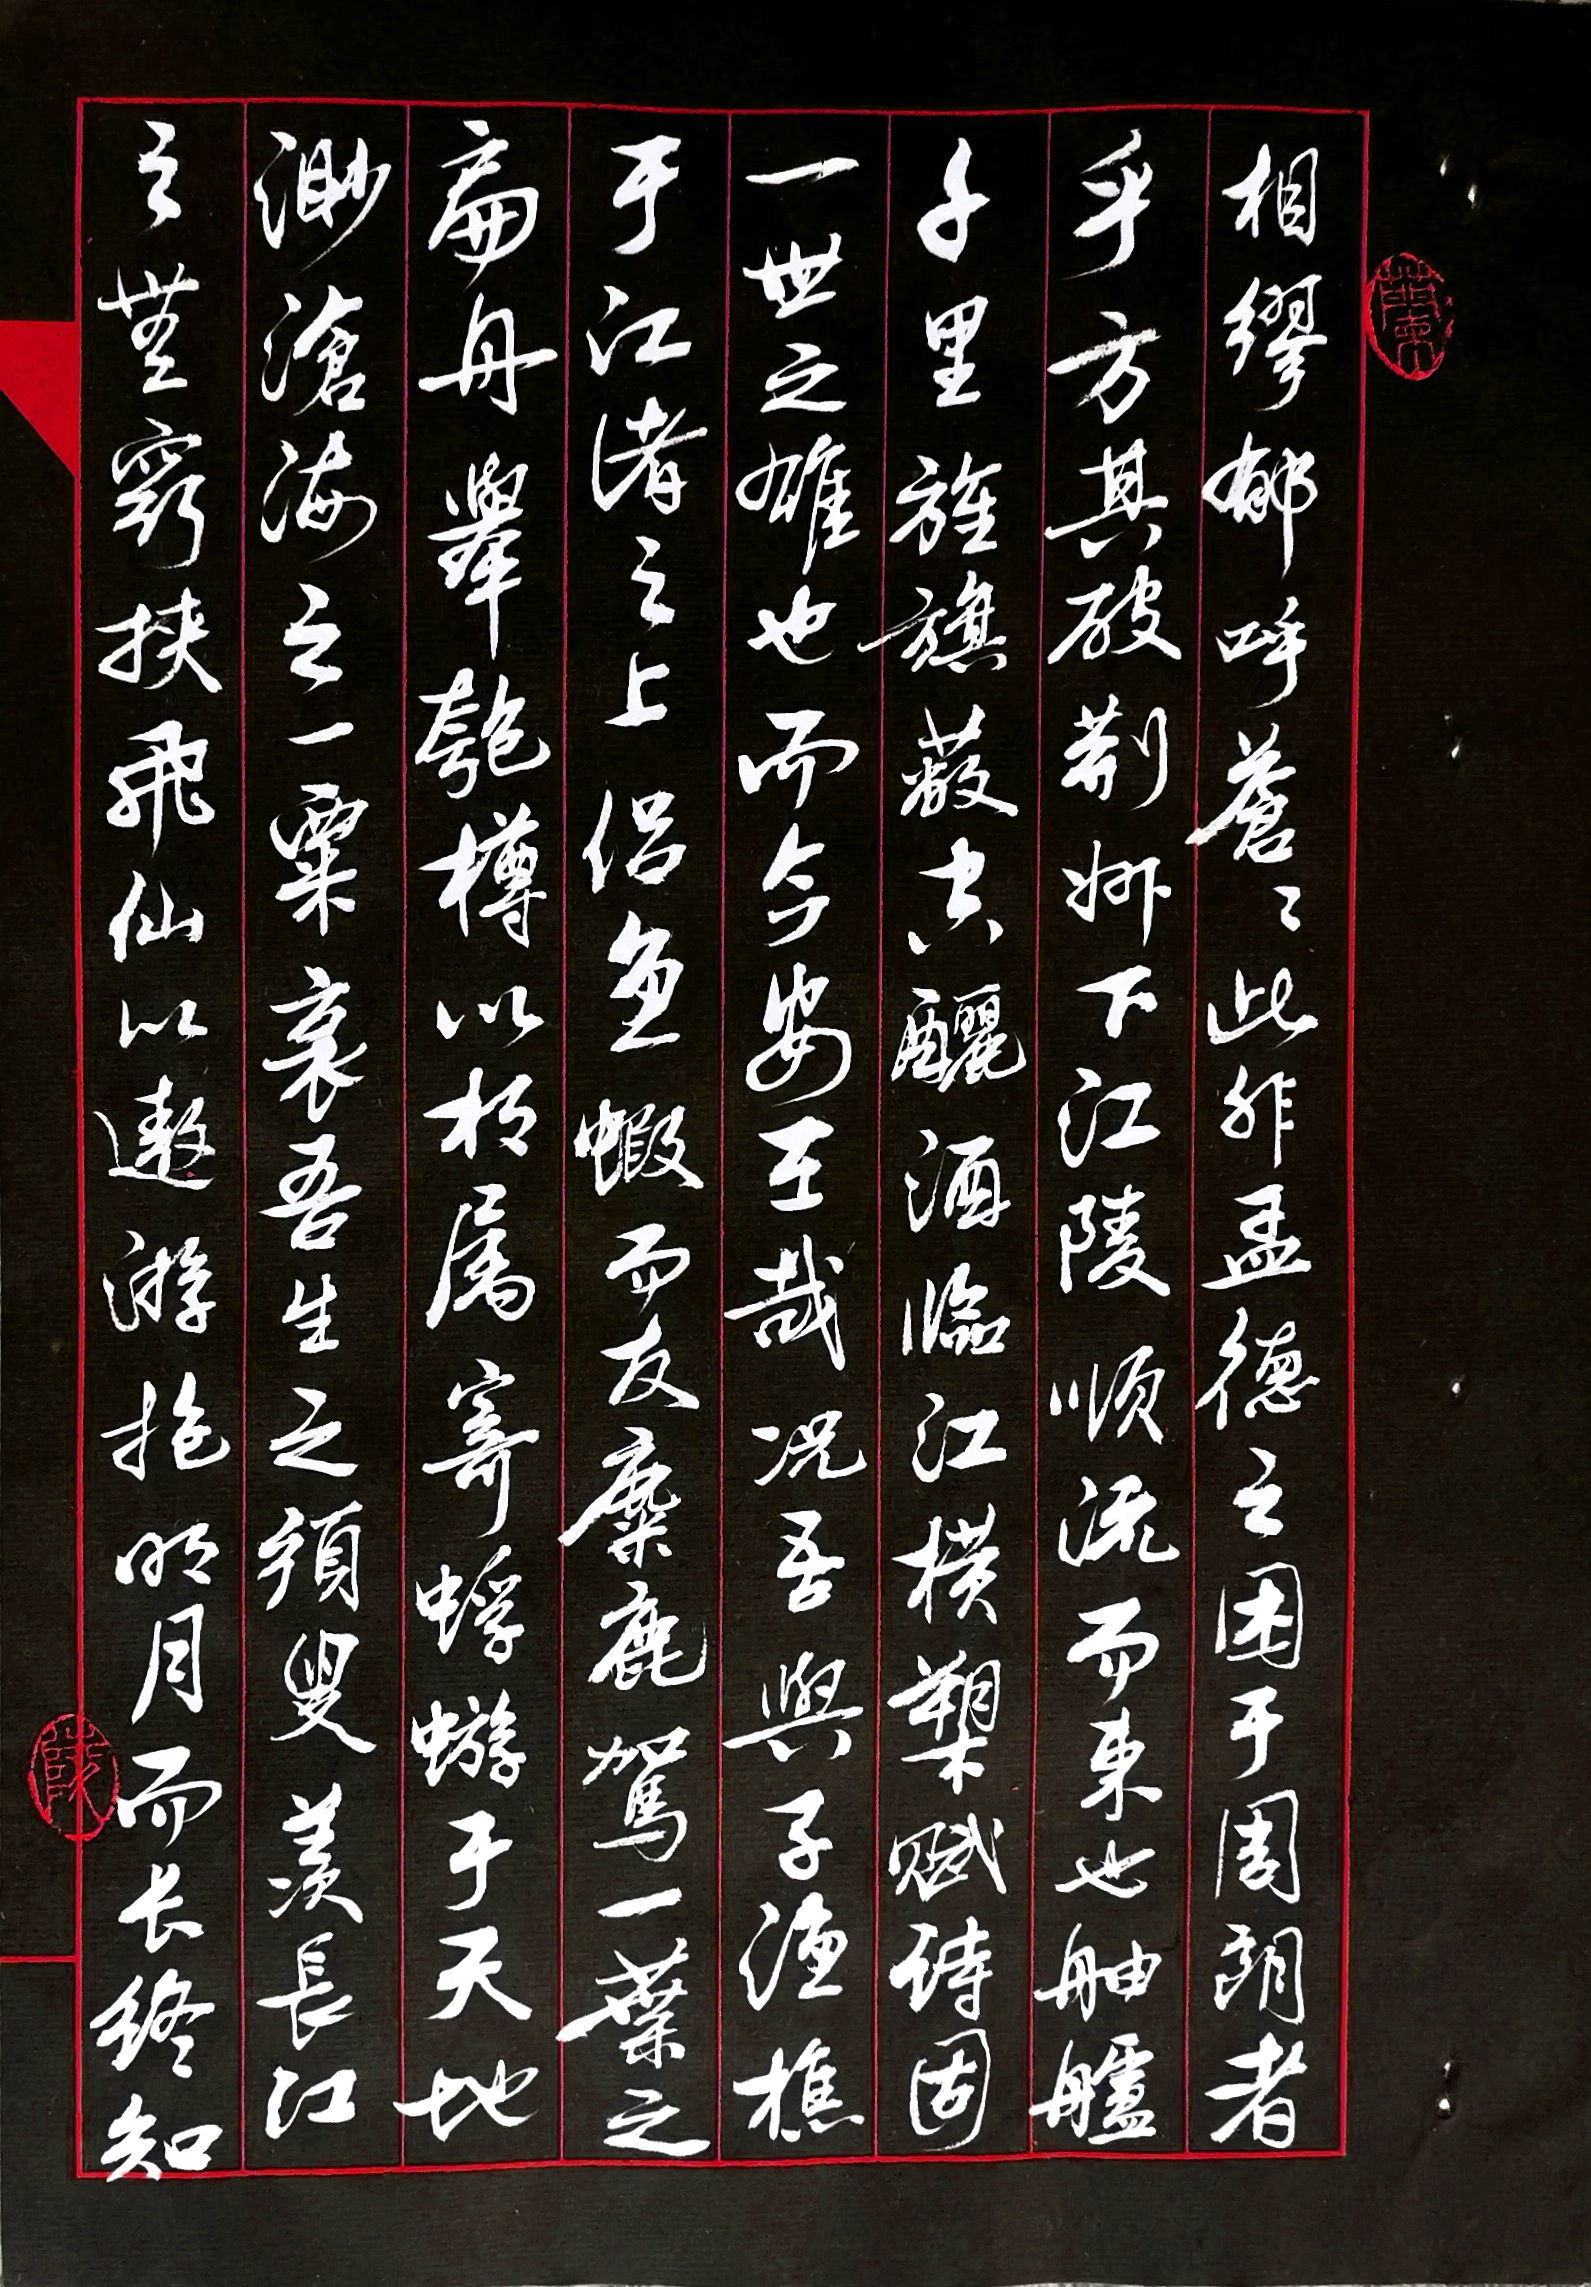 相繆郁呼蒼〻此非孟德之困于周朗者
乎方其破荆州下江陵顺流而東也舳艫
千里旌旗蔽空釃酒臨江横槊赋诗固
一世之雄也而今安在哉况吾與子漁樵
于江渚之上侣魚蝦而友麋鹿駕一葉之
扁舟舉匏樽以相属寄蜉蝣于天地
渺滄海之一粟哀吾生之須臾羡長江
之無窮挟飛仙以遨游抱明月而长终知